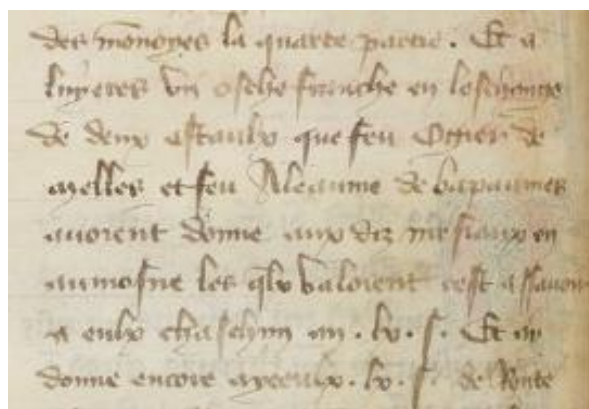 des mōnoyes la quarte partie. Et a
luyeres vn osche franche en leschange
de deux estaulx que feu Ogier de
ayelles et feu Aleaume de bapaumes
auoient donne aux diz mesiaux en
aumosne les qlx valoient cest assauoir
a eulx chaschun an . lx . s . Et ai
donne encore ayceulx . lx . s . de Rente